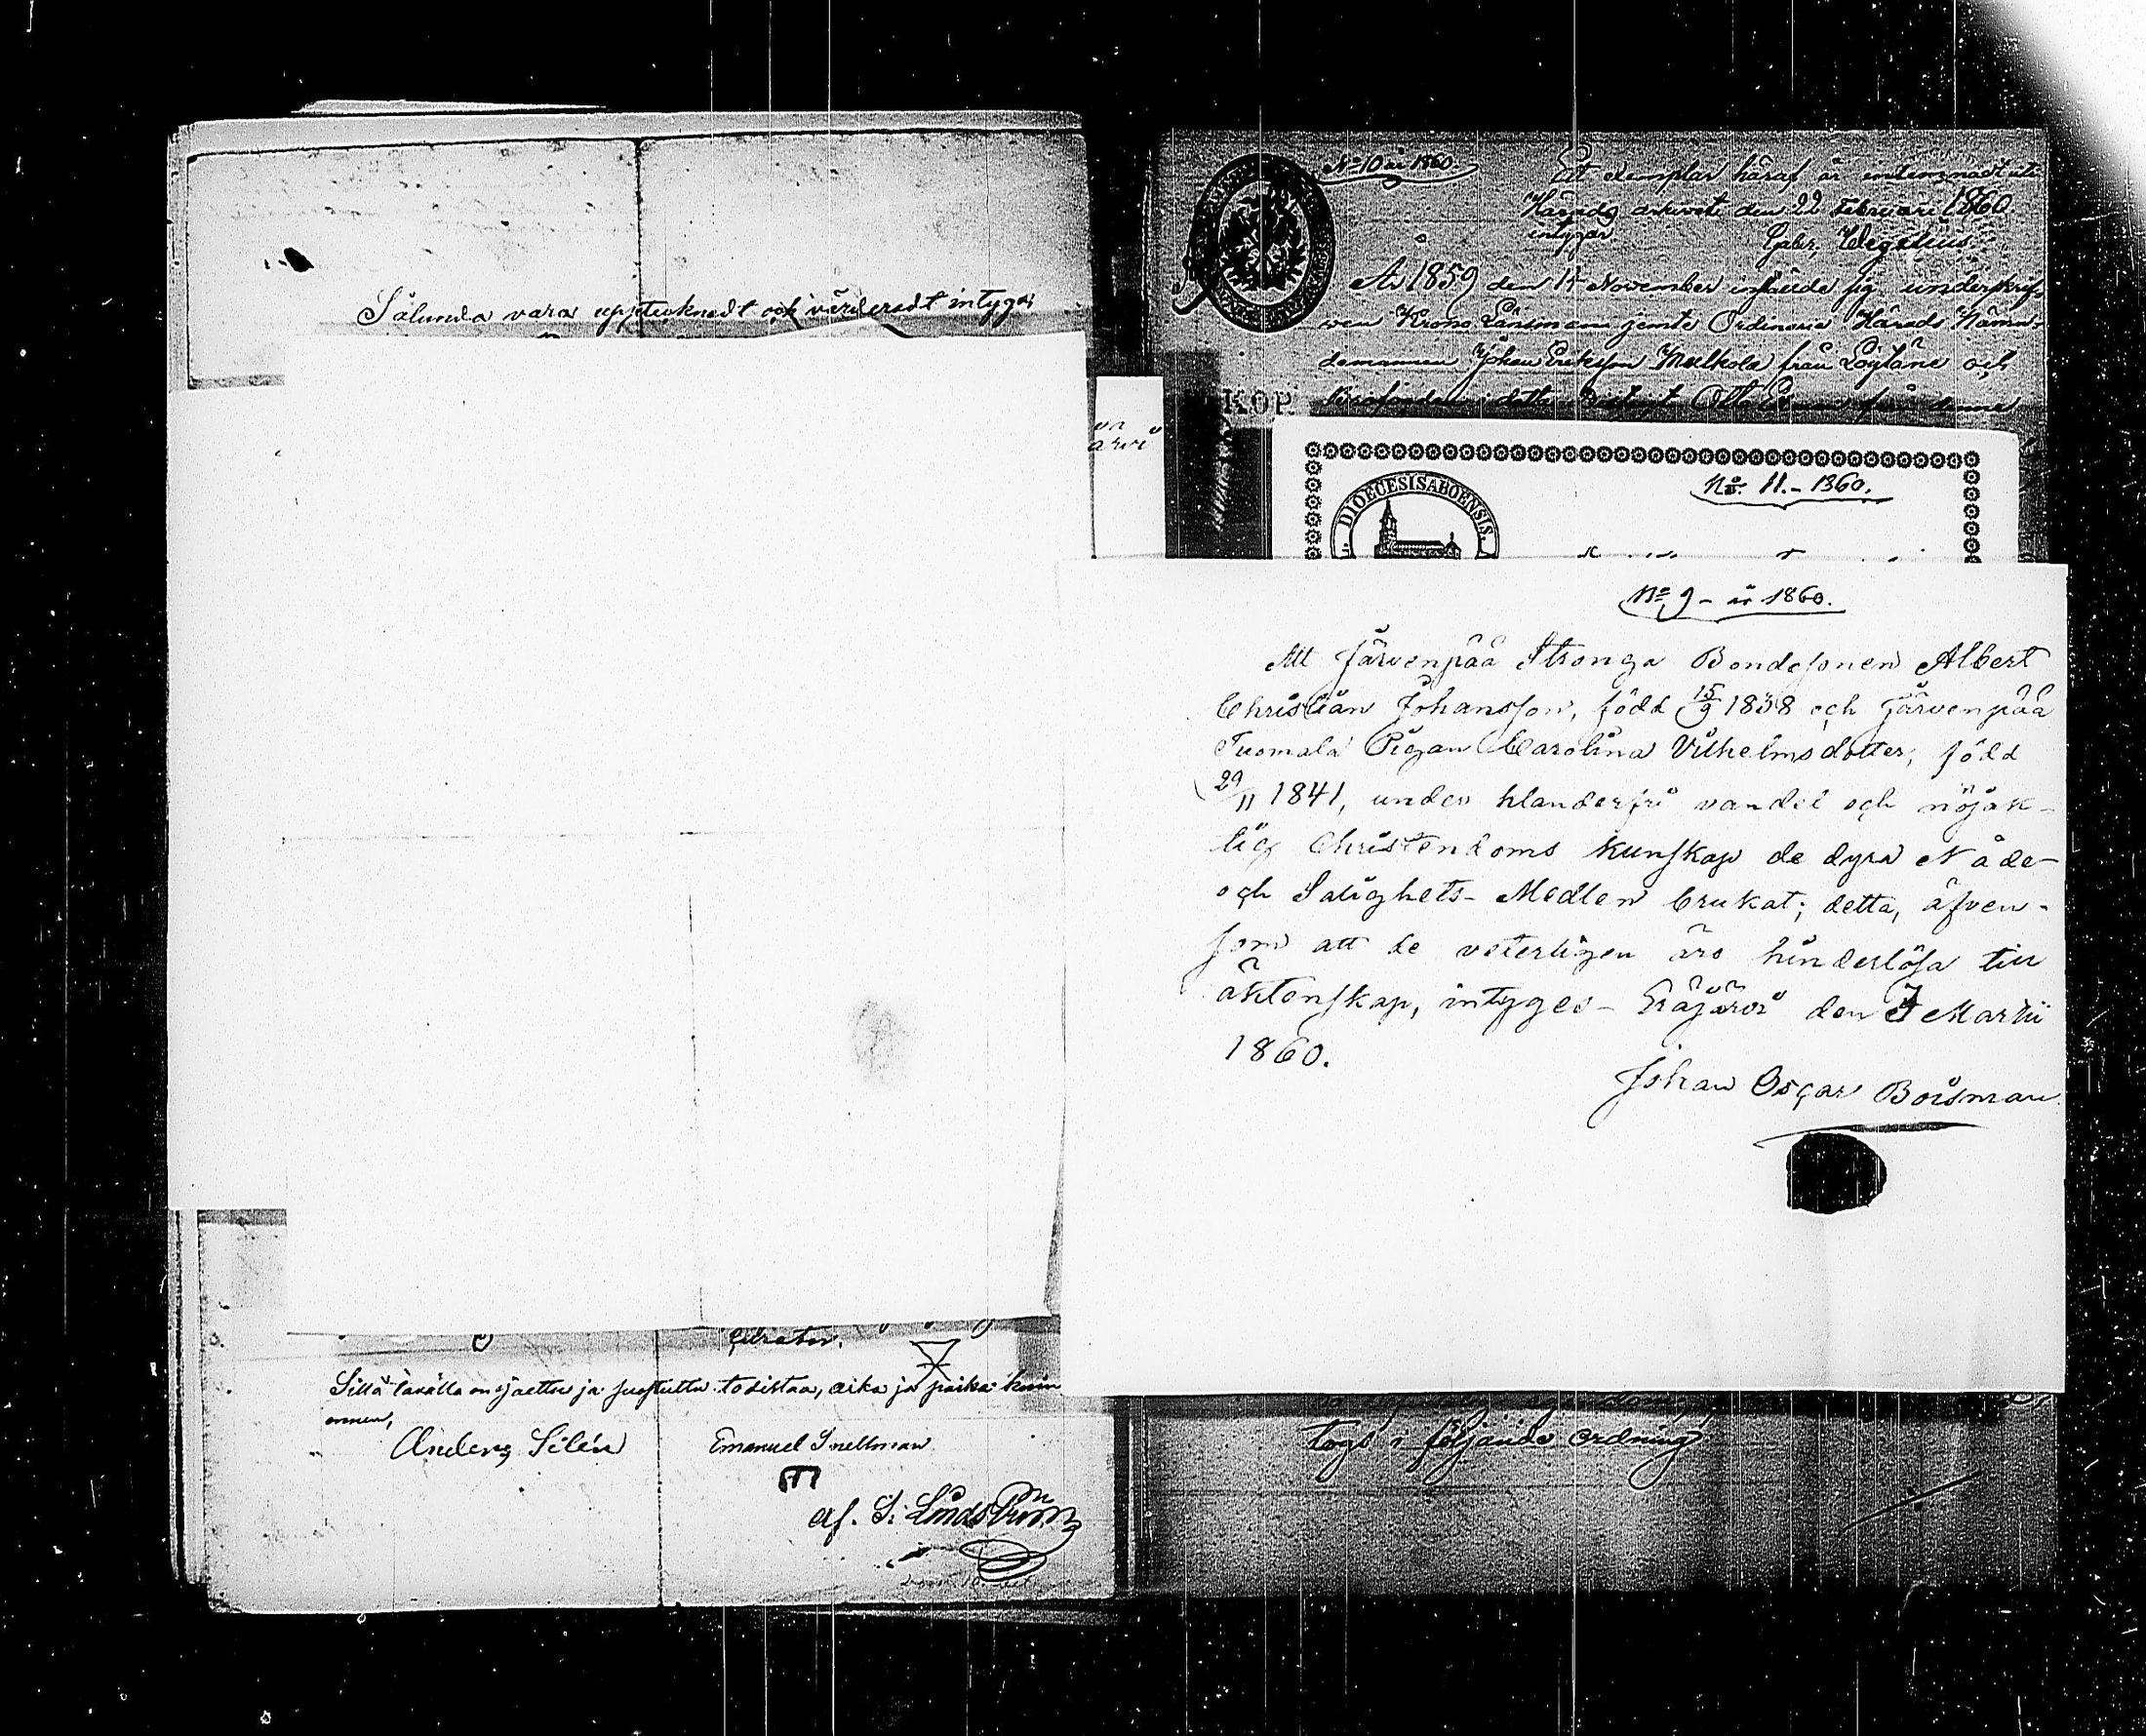 Sålunda vara upptecknadt och värderadt intyga;
curator.
Sillä tavalla on jaettu ja suostuttu todistaa, aika ja paika kuin
ennen,
Anders Silén
Emanuel Snellman
af. S. Lindström
No 10 år 1860.
Ett exemplar häraf är inlemnadt uti
Härads arkivet den 22 Februari 1860
intygar
Gabr. Wegelius
År 1859 den 15 November infunne sig underskrif-
ven Krono Länsman jemte Ordinarie Härads Nämn-
demannen Johan Eriksson Mulkola från Loytäne och
KOP.
No 11.- 1860.
DIOECESIS ABOENSIS.
No 9 - år 1860.
Att Järvenpää Stronga Bondesonen Albert
Christian Johansson, född 15/9 1838 och Järvenpää
Tuomala Pigan Carolina Vilhelmsdotter, född
29/11 1841, under klanderfri vandel och nöjak-
tig Christendoms kunskap de dyra Nåde-
och Salighets-Medlen brukat; detta, äfven-
som att de veterligen äro hinderlösa till
äktenskap, intyges - Eräjärvi den 7 Martii
1860.
Johan Oscar Boisman.
togs i följande ordning